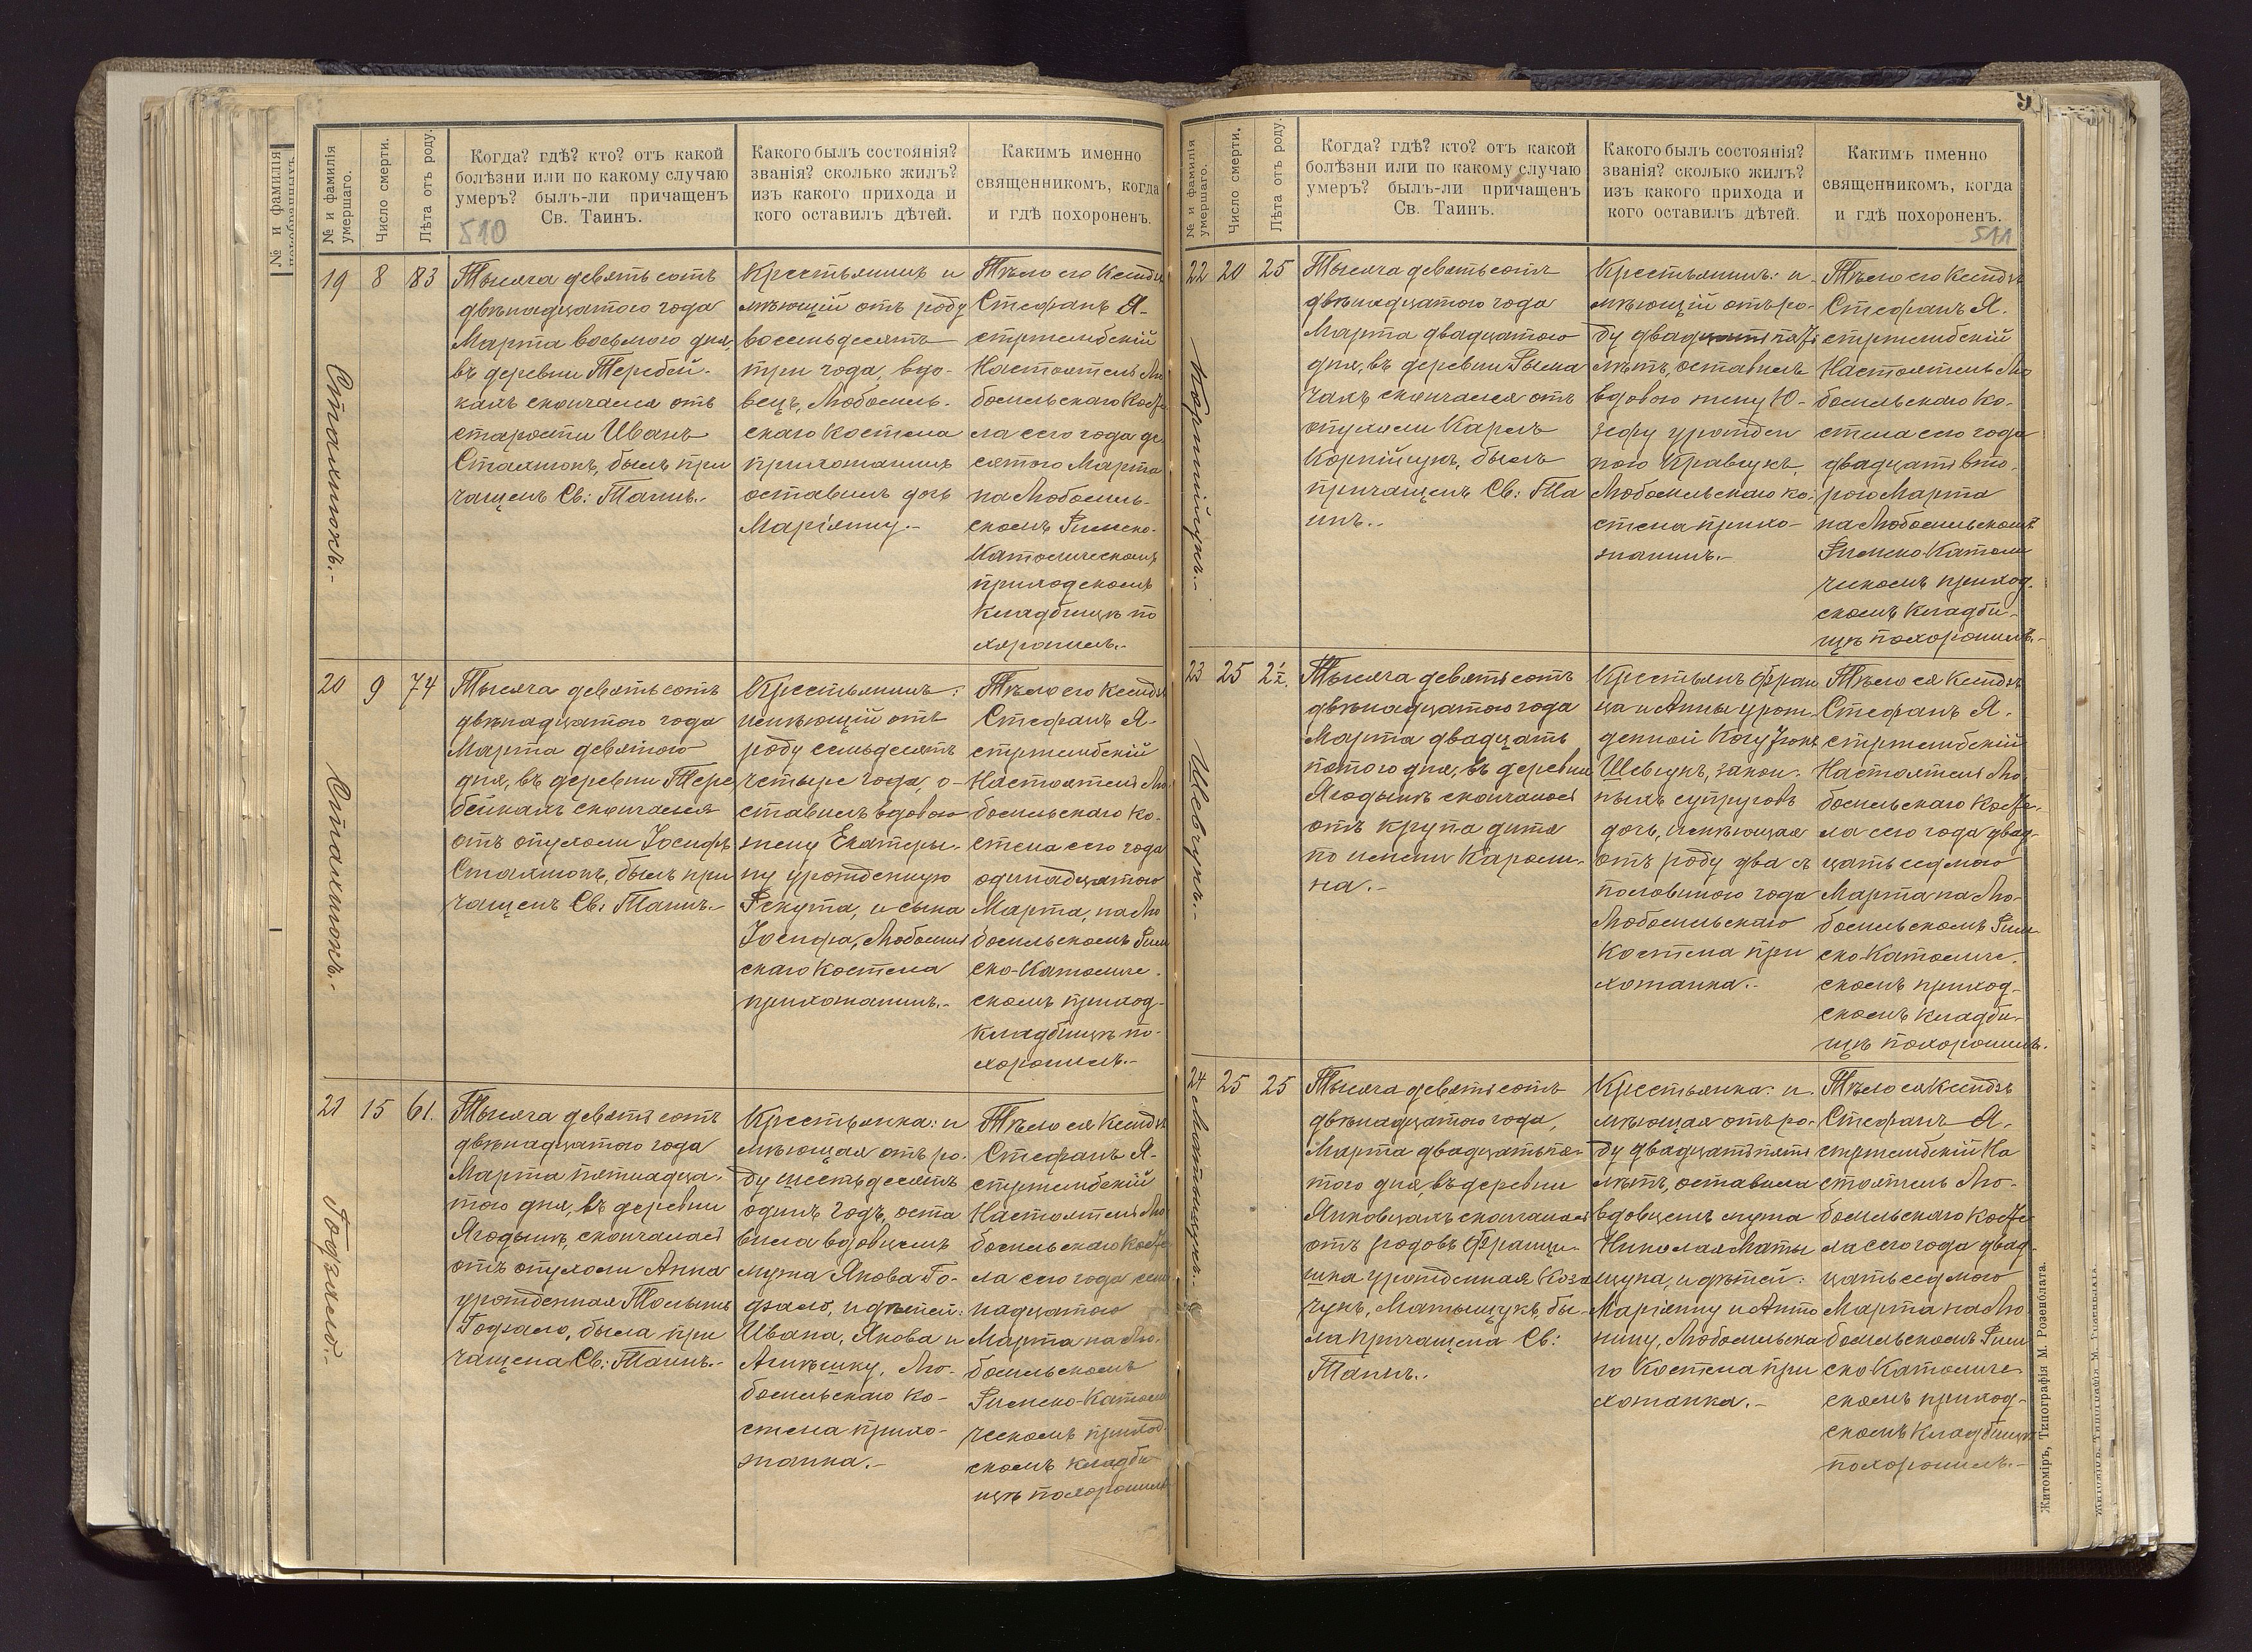 № и фамилія
умершаго.
Число смерти.
Лѣта отъ роду.
Когда? гдѣ? кто? отъ какой
болѣзни или по какому случаю
умеръ? былъ-ли причащенъ
Св. Таинъ.
510
Какого былъ состоянія?
званія? сколько жилъ?
изъ какого прихода и
кого оставилъ дѣтей.
Каким именно
священникомъ, когда
и гдѣ похороненъ.
19
8
83
Стахнюкъ.-
Тысяча девятьсотъ
двѣнадцатого года
Марта восьмого дня,
въ деревни Теребей-
кахъ скончался отъ
старости Иванъ
Стахнюкъ, былъ при
чащенъ Св: Таинъ.-
Крестьянинъ и
мѣющій отъ роду
восемьдесятъ
три года, вдо-
вецъ, Любомль-
скаго Костела
прихожанинъ
оставилъ дочь
Маріянну.-
Тѣло его Ксендзъ
Стефанъ Я-
стржембскій
Настоятель Лю
бомльскаго Косте
ла сего года де
сятого Марта
на Любомль-
скомъ Римско-
Католическомъ
приходскомъ
Кладбищѣ по
хоронилъ.-
20
9
74
Стахнюкъ.-
Тысяча девятьсотъ
двѣнадцатого года
Марта девятого
дня, въ деревни Тере
бейкахъ скончался
отъ опухоли Іосифъ
Стахнюкъ, былъ при
чащенъ Св: Таинъ.-
Крестьянинъ:
имѣющій отъ
роду семьдесятъ
четыре года, о-
ставилъ вдовою
жену Екатери-
ну урожденную
Рекута, и сына
Іосифа, Любомль
скаго Костела
прихожанинъ.-
Тѣло его Ксендзъ
Стефанъ Я-
стржембскій
Настоятель Лю
бомльскаго Ко-
стела сего года
одинадцатого
Марта, на Лю
бомльскомъ Рим
ско-Католиче-
скомъ приход-
кладбищѣ по-
хоронилъ.-
21
15
61.
Годзяло.-
Тысяча девятьсотъ
двѣнадцатого года
Марта пятнадца-
того дня, въ деревни
Ягодынѣ, скончалась
отъ опухоли Анна
урожденная
Годзяло, была при
чащена Св: Таинъ.-
Крестьянка: и
мѣющая отъ ро-
ду шестьдесятъ
одинъ годъ, оста
вила вдовцемъ
мужа Якова Го-
дзяло, и дѣтей:
Ивана, Якова и
Агнѣшку, Лю-
бомльскаго Ко-
стела прихо-
жанка.-
Тѣло ея Ксендзъ
Стефанъ Я-
стржембскій
Настоятель Лю
бомльскаго Косте
ла сего года сем
надцатого
Марта на Лю-
бомльскомъ
Римско-Католи
ческомъ приход
скомъ кладби
щѣ похоронилъ
9
№ и фамилія
умершаго.
Число смерти.
Лѣта отъ роду.
Когда? гдѣ? кто? отъ какой
болѣзни или по какому случаю
умеръ? былъ-ли причащенъ
Св. Таинъ.
Какого былъ состоянія?
званія? сколько жилъ?
изъ какого прихода и
кого оставилъ дѣтей.
Каким именно
священникомъ, когда
и гдѣ похороненъ.
511
22
20
25
Корнійчукъ.-
Тысяча девятьсотъ
двѣнадцатого года
Марта двадцатого
дня, въ деревни Рыма
чахъ скончался отъ
опухоли Карлъ
Корнійчукъ, былъ
причащенъ Св: Та
инъ.-
Крестьянинъ: и-
мѣющій отъ ро-
ду двадцать пять
лѣтъ, оставилъ
вдовою жену Ю-
зефу урожден
ною Кравчукъ,
Любомльскаго ко-
стела прихо-
жанинъ.-
Тѣло его Ксендзъ
Стефанъ Я-
стржембскій
Настоятель Лю
бомльскаго Ко-
стела сего года
двадцать вто-
рого Марта
на Любомльскомъ
Римско-Католи
ческомъ приход-
скомъ Кладби-
щѣ похоронилъ.-
23
25
2½.
Шевчукъ.-
Тысяча девятьсотъ
двѣнадцатого года
Марта двадцать
пятого дня, въ деревни
Ягодынѣ скончалась
отъ крупа дитя
по имени Кароли-
на.-
Крестьянъ Фран
ца и Анны урож-
денной
Шевчукъ, закон-
ныхъ супруговъ
дочь, имѣющая
отъ роду два съ
половиною года
Любомльскаго
Костела при
хожанка.-
Тѣло ея Ксендзъ
Стефанъ Я-
стржембскій
Настоятель Лю
бомльскаго Косте-
ла сего года двад-
цать седмого
Марта на Лю-
бомльскомъ Рим
ско-Католиче-
скомъ приход-
скомъ Кладби-
щѣ похоронилъ.
24
25
25
Матыщукъ.-
Тысяча девятьсотъ
двѣнадцатого года,
Марта двадцать пя-
того дня, въ деревни
Янковцахъ скончалась
отъ родовъ Франци-
шка урожденная Коза
чукъ, Матыщукъ, бы-
ла причащена Св:
Таинъ.-
Крестьянка: и-
мѣющая отъ ро-
ду двадцать пять
лѣтъ, оставила
вдовцемъ мужа
Николая Маты
щука, и дѣтей:
Маріянну и Анто
нину, Любомльска
го Костела при
хожанка.-
Тѣло ея Ксендзъ
Стефанъ Я-
стржембскій На
стоятель Лю-
бомльскаго Косте
ла сего года двад-
цать седмого
Марта на Лю
бомльскомъ Рим
ско-Католиче
скомъ приход-
скомъ Кладбищѣ
похоронилъ.-
Житоміръ, Типографія М. Розенблата.